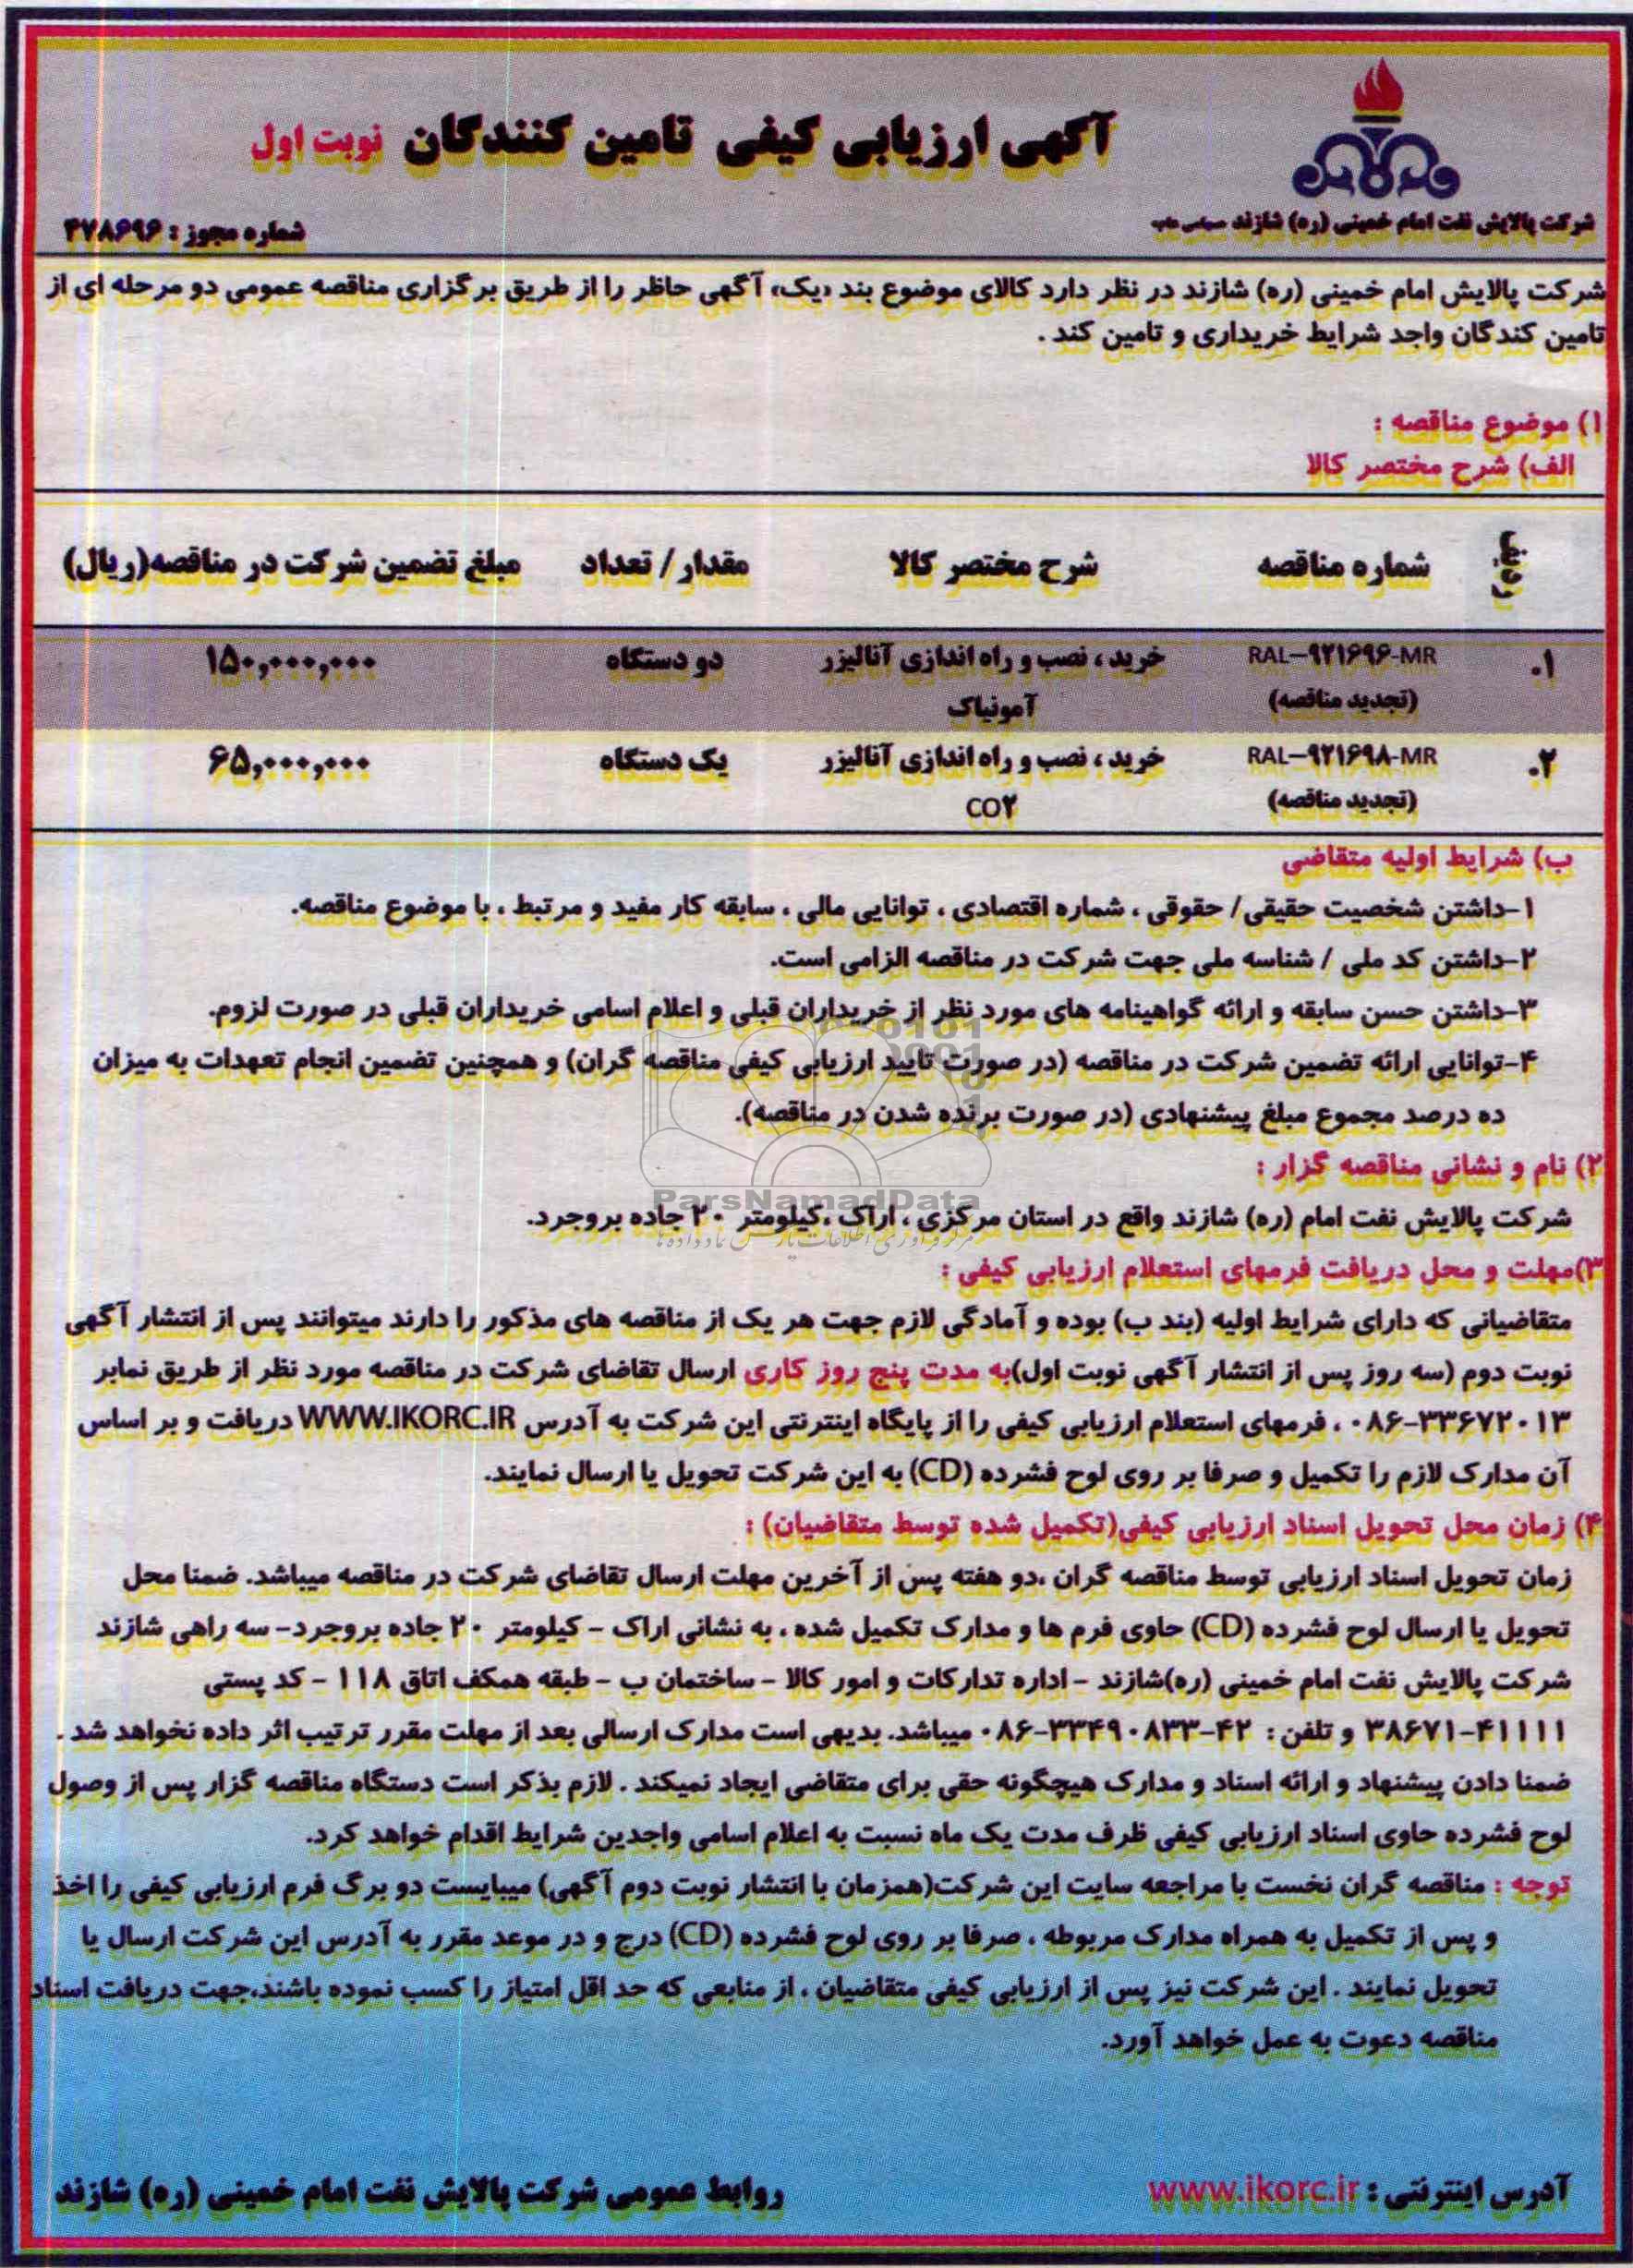 آگهی ارزیابی کیفی تامین کنندگان نوبت اول
شرکت پالایش نفت امام خمینی (ره) شازند
شماره مجوز : ۴۷۸۶۹۶
شرکت پالایش امام خمینی (ره) شازند در نظر دارد کالای موضوع بند «یک» آگهی حاظر را از طریق برگزاری مناقصه عمومی دو مرحله ای از
تامین کندگان واجد شرایط خریداری و تامین کند .
۱) موضوع مناقصه :
الف) شرح مختصر کالا
ردیف شماره مناقصه شرح مختصر کالا مقدار / تعداد مبلغ تضمین شرکت در مناقصه(ریال)
۱. RAL-۹۲۱۶۹۶-MR خرید ، نصب و راه اندازی آنالیزر دو دستگاه ۱۵۰,۰۰۰,۰۰۰
(تجدید مناقصه) آمونیاک
۲. RAL-۹۲۱۶۹۸-MR خرید ، نصب و راه اندازی آنالیزر یک دستگاه ۶۵,۰۰۰,۰۰۰
(تجدید مناقصه) CO۲
ب) شرایط اولیه متقاضی
۱-داشتن شخصیت حقیقی/ حقوقی ، شماره اقتصادی ، توانایی مالی ، سابقه کار مفید و مرتبط ، با موضوع مناقصه.
۲-داشتن کد ملی / شناسه ملی جهت شرکت در مناقصه الزامی است.
۳-داشتن حسن سابقه و ارائه گواهینامه های مورد نظر از خریداران قبلی و اعلام اسامی خریداران قبلی در صورت لزوم.
۴-توانایی ارائه تضمین شرکت در مناقصه (در صورت تایید ارزیابی کیفی مناقصه گران) و همچنین تضمین انجام تعهدات به میزان
ده درصد مجموع مبلغ پیشنهادی (در صورت برنده شدن در مناقصه).
۲) نام و نشانی مناقصه گزار :
ParsNamadData
شرکت پالایش نفت امام (ره) شازند واقع در استان مرکزی ، اراک ،کیلومتر ۲۰ جاده بروجرد.
۳)مهلت و محل دریافت فرمهای استعلام ارزیابی کیفی :
متقاضیانی که دارای شرایط اولیه (بند ب) بوده و آمادگی لازم جهت هر یک از مناقصه های مذکور را دارند میتوانند پس از انتشار آگهی
نوبت دوم (سه روز پس از انتشار آگهی نوبت اول)به مدت پنج روز کاری ارسال تقاضای شرکت در مناقصه مورد نظر از طریق نمابر
۰۸۶-۳۳۶۷۲۰۱۳ ، فرمهای استعلام ارزیابی کیفی را از پایگاه اینترنتی این شرکت به آدرس WWW.IKORC.IR دریافت و بر اساس
آن مدارک لازم را تکمیل و صرفا بر روی لوح فشرده (CD) به این شرکت تحویل یا ارسال نمایند.
۴) زمان محل تحویل اسناد ارزیابی کیفی(تکمیل شده توسط متقاضیان) :
زمان تحویل اسناد ارزیابی توسط مناقصه گران ،دو هفته پس از آخرین مهلت ارسال تقاضای شرکت در مناقصه میباشد. ضمنا محل
تحویل یا ارسال لوح فشرده (CD) حاوی فرم ها و مدارک تکمیل شده ، به نشانی اراک – کیلومتر ۲۰ جاده بروجرد- سه راهی شازند
شرکت پالایش نفت امام خمینی (ره)شازند – اداره تدارکات و امور کالا – ساختمان ب – طبقه همکف اتاق ۱۱۸ – کد پستی
۳۸۶۷۱-۴۱۱۱۱ و تلفن : ۰۸۶-۳۳۴۹۰۸۳۳-۴۲ میباشد. بدیهی است مدارک ارسالی بعد از مهلت مقرر ترتیب اثر داده نخواهد شد .
ضمنا دادن پیشنهاد و ارائه اسناد و مدارک هیچگونه حقی برای متقاضی ایجاد نمیکند . لازم بذکر است دستگاه مناقصه گزار پس از وصول
لوح فشرده حاوی اسناد ارزیابی کیفی ظرف مدت یک ماه نسبت به اعلام اسامی واجدین شرایط اقدام خواهد کرد.
توجه : مناقصه گران نخست با مراجعه سایت این شرکت(همزمان با انتشار نوبت دوم آگهی) میبایست دو برگ فرم ارزیابی کیفی را اخذ
و پس از تکمیل به همراه مدارک مربوطه ، صرفا بر روی لوح فشرده (CD) درج و در موعد مقرر به آدرس این شرکت ارسال یا
تحویل نمایند . این شرکت نیز پس از ارزیابی کیفی متقاضیان ، از منابعی که حد اقل امتیاز را کسب نموده باشند،جهت دریافت اسناد
مناقصه دعوت به عمل خواهد آورد.
آدرس اینترنتی : www.ikorc.ir
روابط عمومی شرکت پالایش نفت امام خمینی (ره) شازند